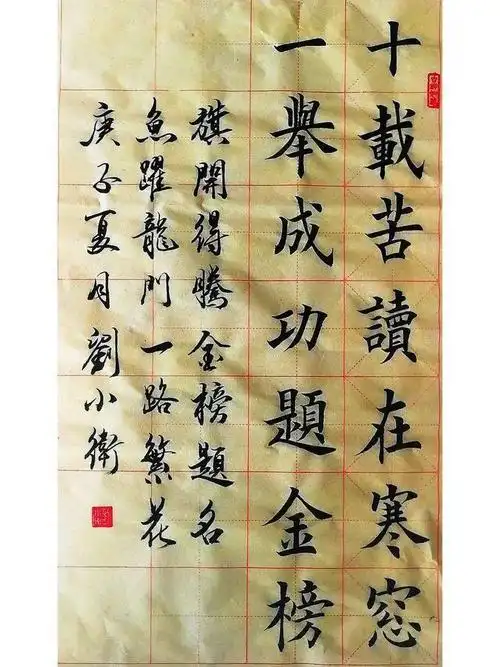 十載苦讀在寒窓
一舉成功題金榜
旗開得騰金榜題名
魚躍龍門一路繁花
庚子夏月劉小衛